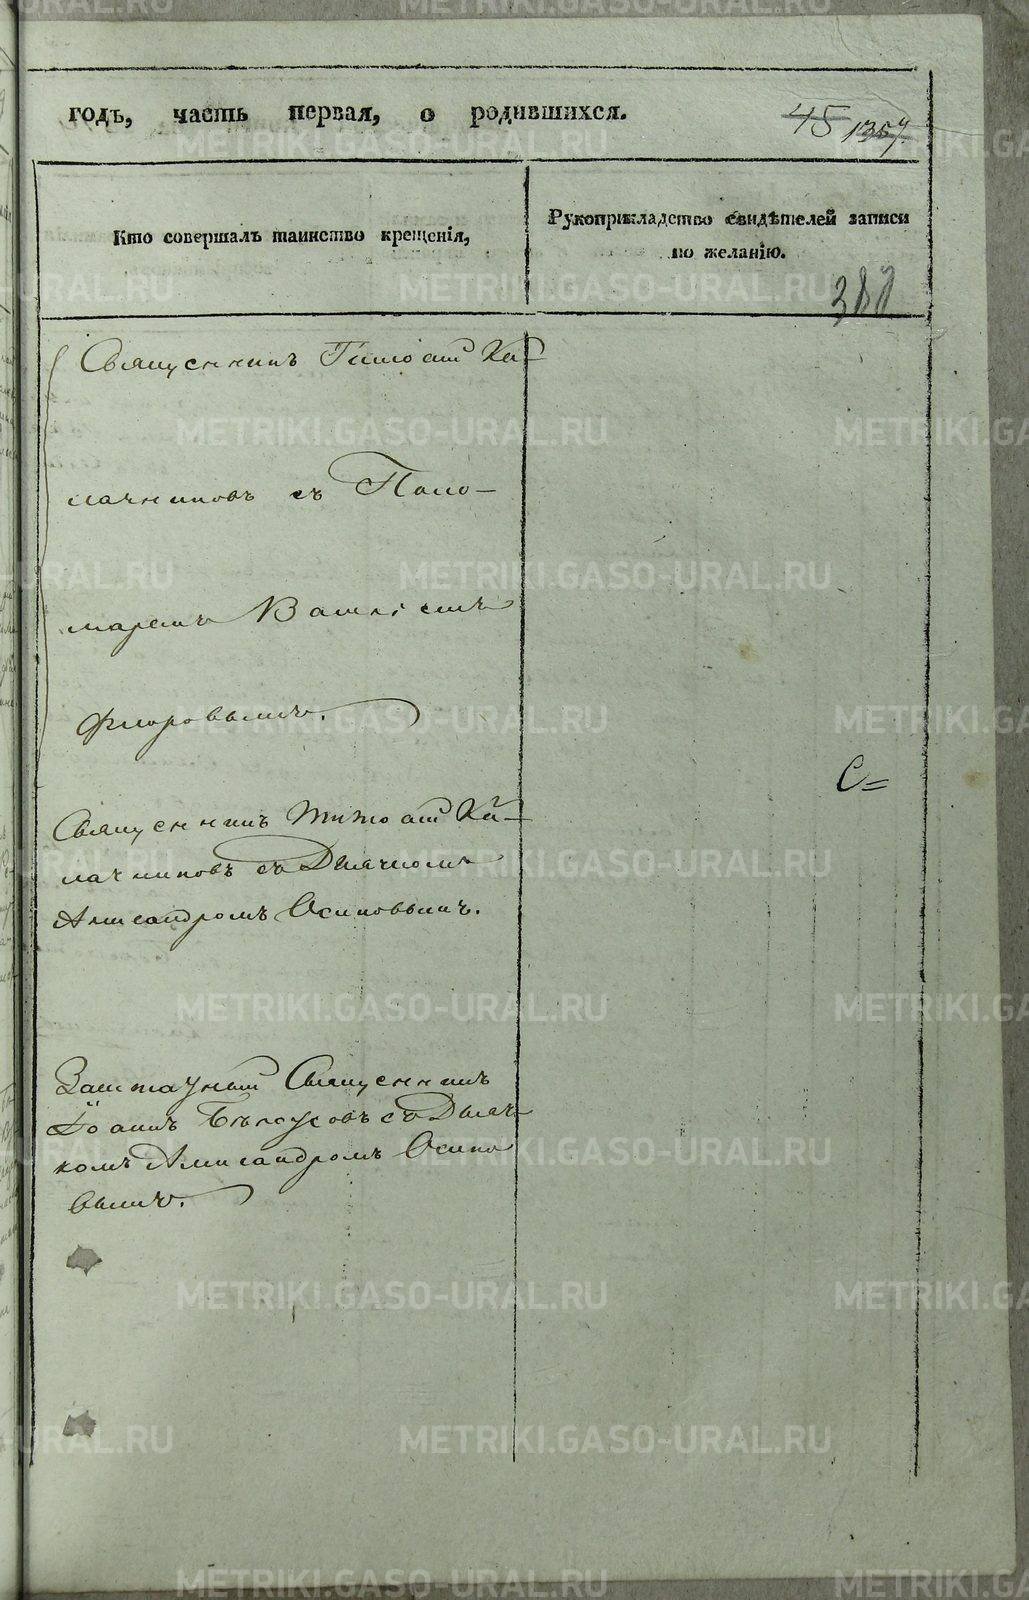 годъ, часть первая, о родившихся.
45 1357.
Кто совершалъ таинство крещенія,
Рукоприкладство свидѣтелей записи
по желанію.
388
Священникъ Тимофей Ка-
лачниковъ съ Поно-
маремъ Василіемъ
Флоровымъ.
С=
Священникъ Тимофей Ка-
лачниковъ съ Дьячкомъ
Александромъ Осиповымъ.
Заштатный Священникъ
Іоаннъ Бѣлоусовъ съ Дьяч-
комъ Александромъ Осипо
вымъ.
METRIKI.GASO-URAL.RU